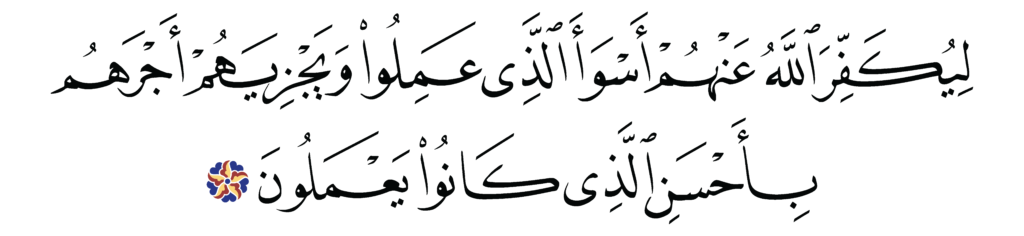 لِيُكَفِّرَ ٱللَّهُ عَنْهُمْ أَسْوَأَ ٱلَّذِى عَمِلُوا۟ وَيَجْزِيَهُمْ أَجْرَهُم
بِأَحْسَنِ ٱلَّذِى كَانُوا۟ يَعْمَلُونَ